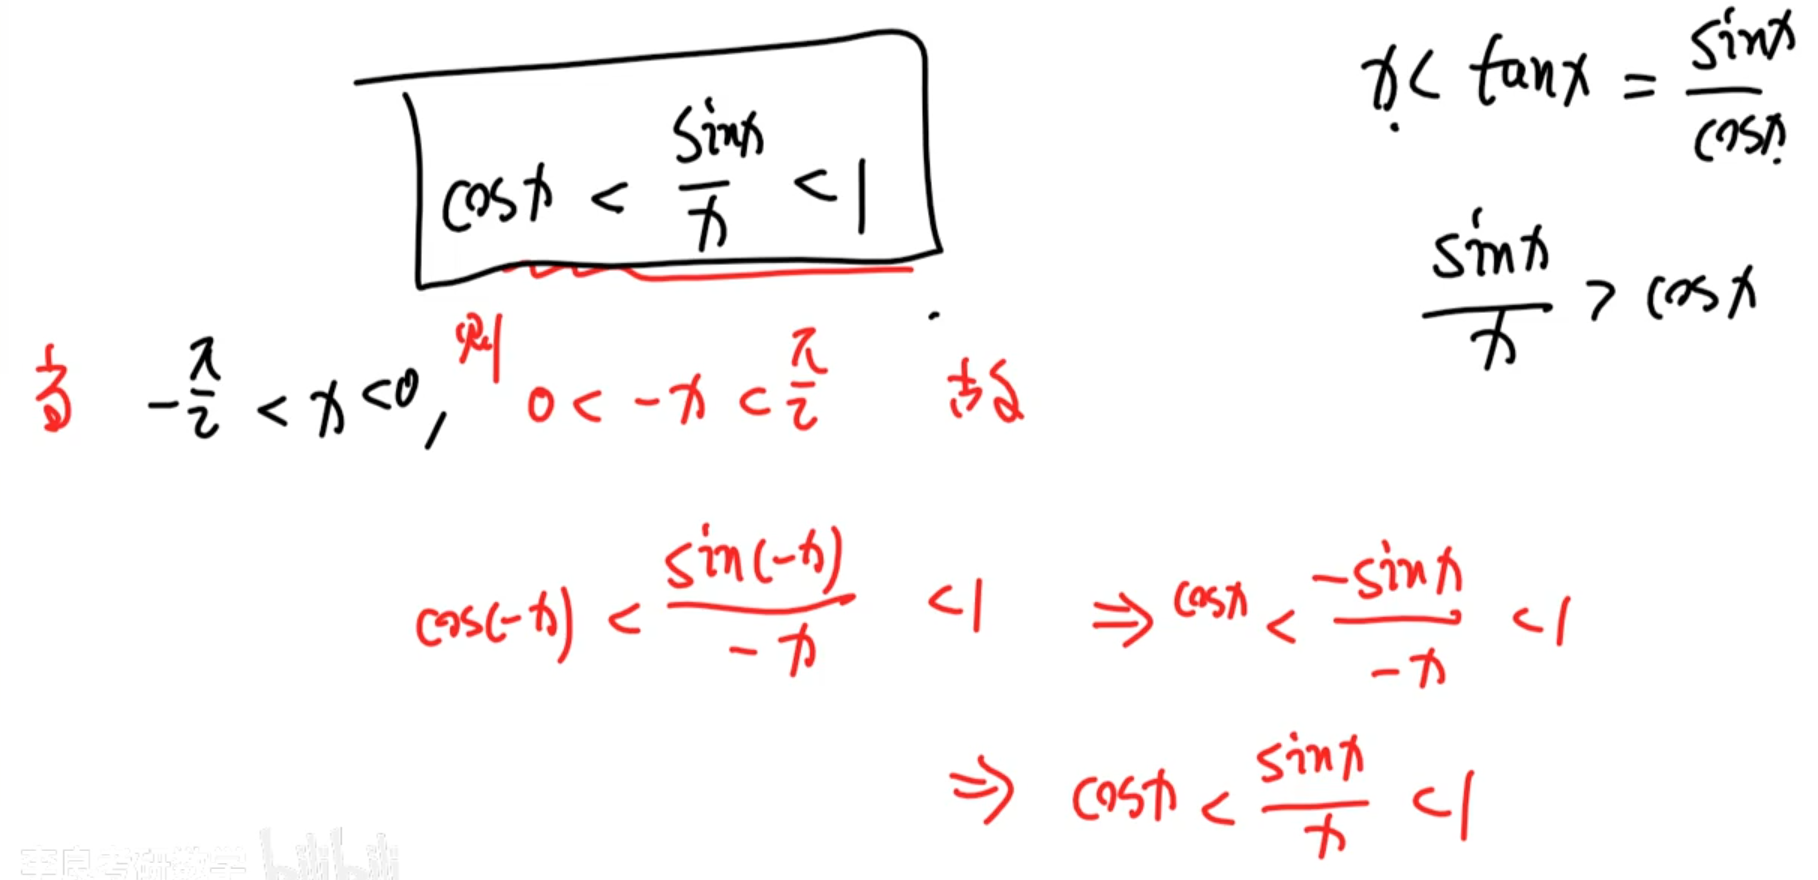 x < tanx = sinx/cosx
cosx < sinx/x < 1
sinx/x > cosx
当 -π/2 < x < 0, 则 0 < -x < π/2
cos(-x) < sin(-x)/-x < 1 ⇒ cosx < -sinx/-x < 1
⇒ cosx < sinx/x < 1
李良考研数学 bilibili